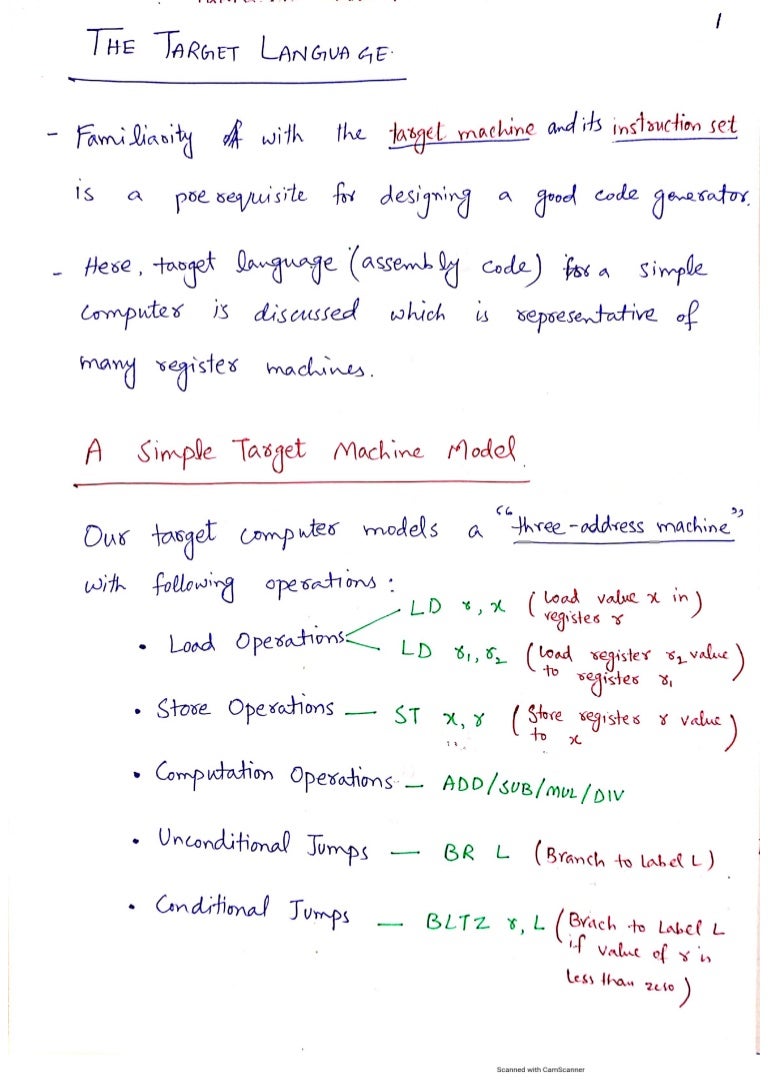 1
THE TARGET LANGUAGE.
- Familiarity with the target machine and its instruction set
is a prerequisite for designing a good code generator.
- Here, target language (assembly code) for a simple
computer is discussed which is representative of
many register machines.
A Simple Target Machine Model.
Our target computer models a "three-address machine"
with following operations :
• Load Operations
LD r, x (Load value x in
register r)
LD r1, r2 (Load register r2 value
to register r1)
• Store Operations — ST x, r (Store register r value
to x)
• Computation Operations — ADD/SUB/MUL/DIV
• Unconditional Jumps — BR L (Branch to Label L)
• Conditional Jumps — BLTZ r, L (Brach to Label L
if value of r is
less than zero)
Scanned with CamScanner